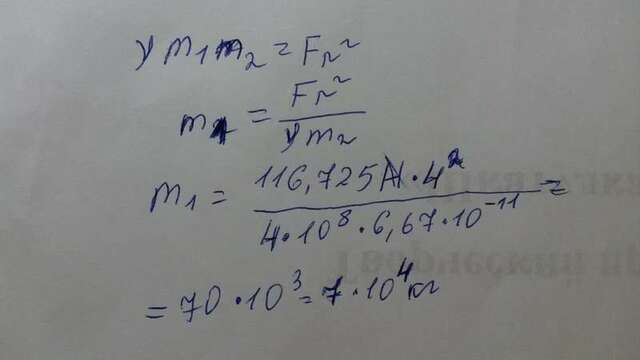 γ m₁m₂ = Fr²
m₁ = Fr² / γm₂
m₁ = 116,725Н·4² / 4·10⁸·6,67·10⁻¹¹ =
= 70·10³ = 7·10⁴кг